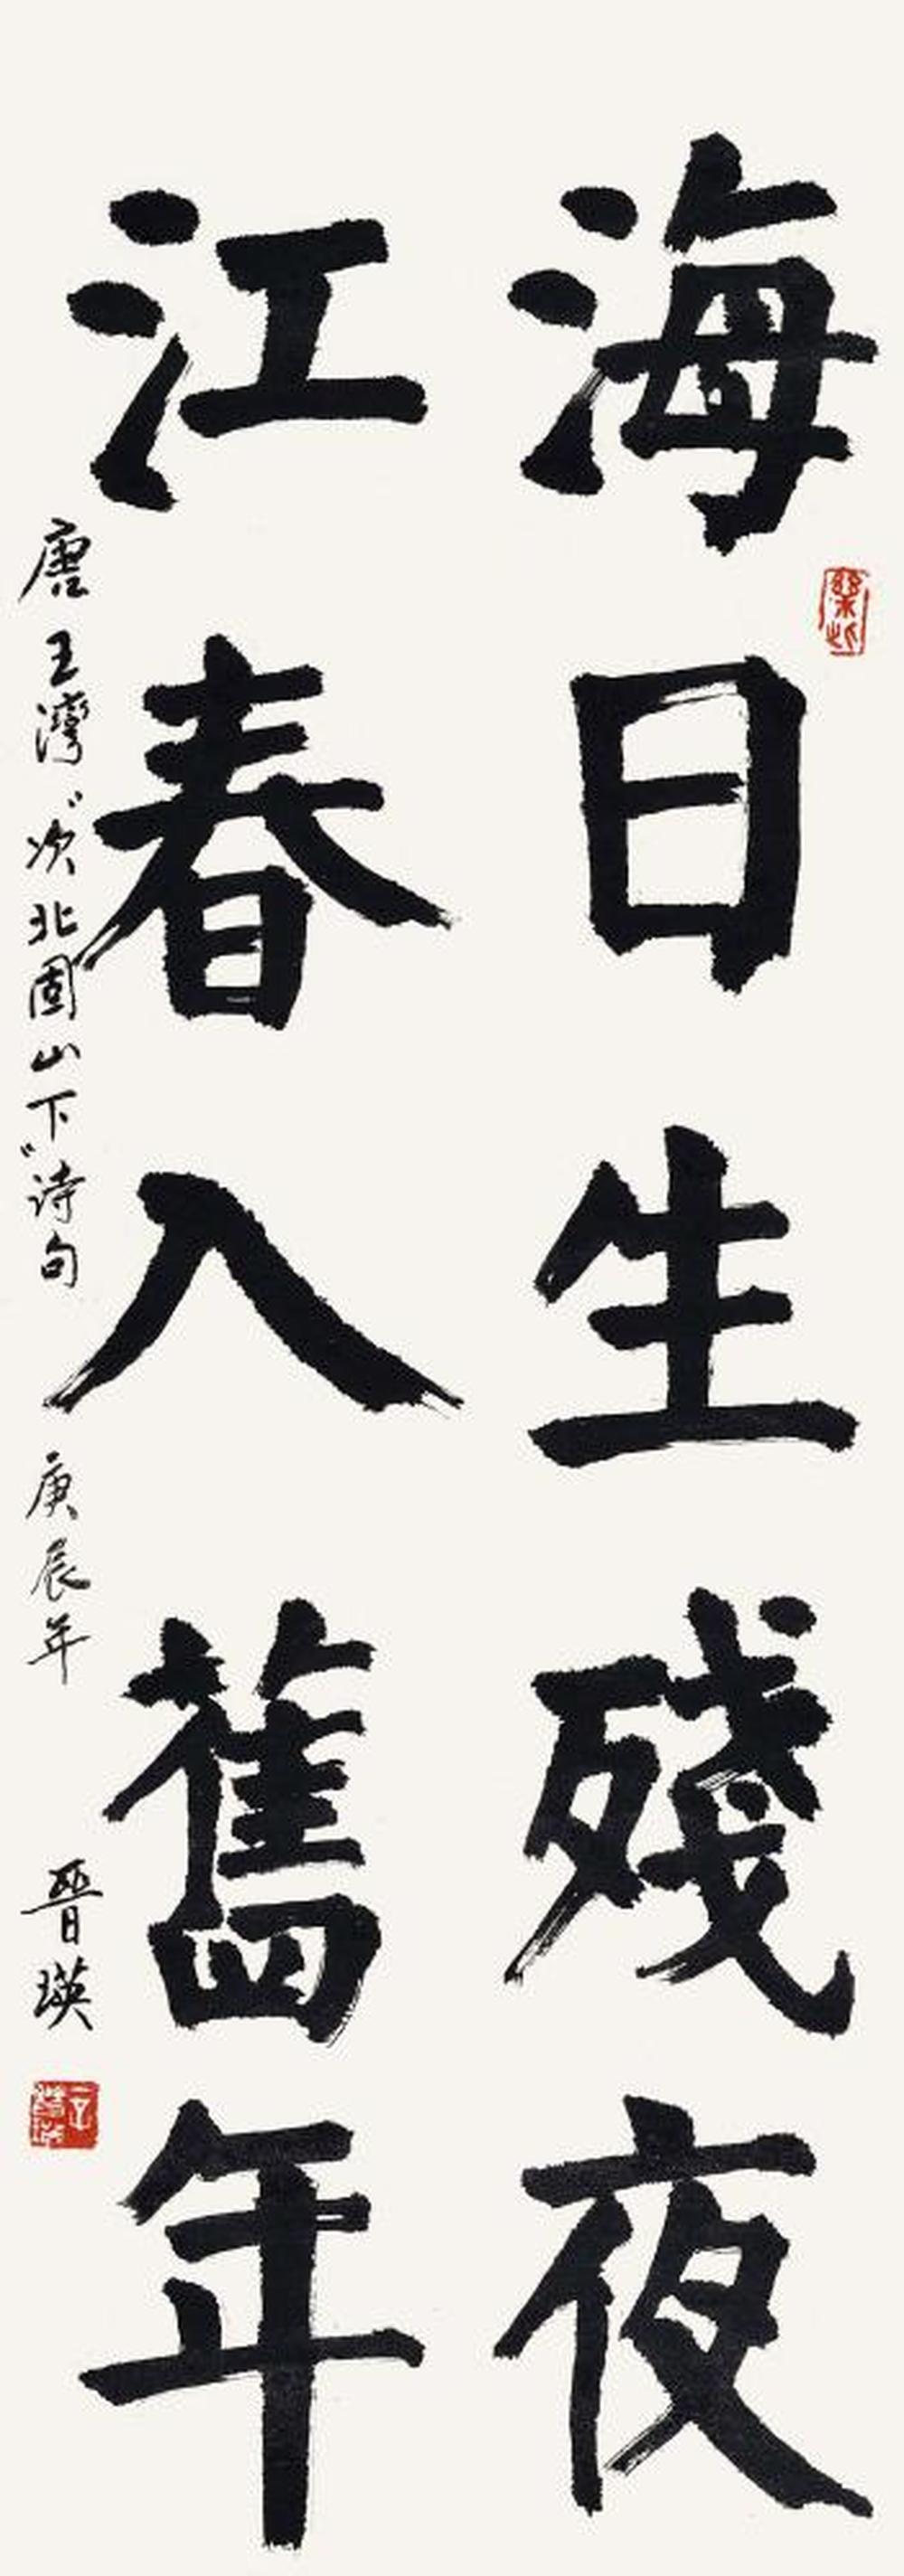 海日生殘夜
江春入舊年
唐 王灣“次北固山下”诗句 庚辰年 晉瑛